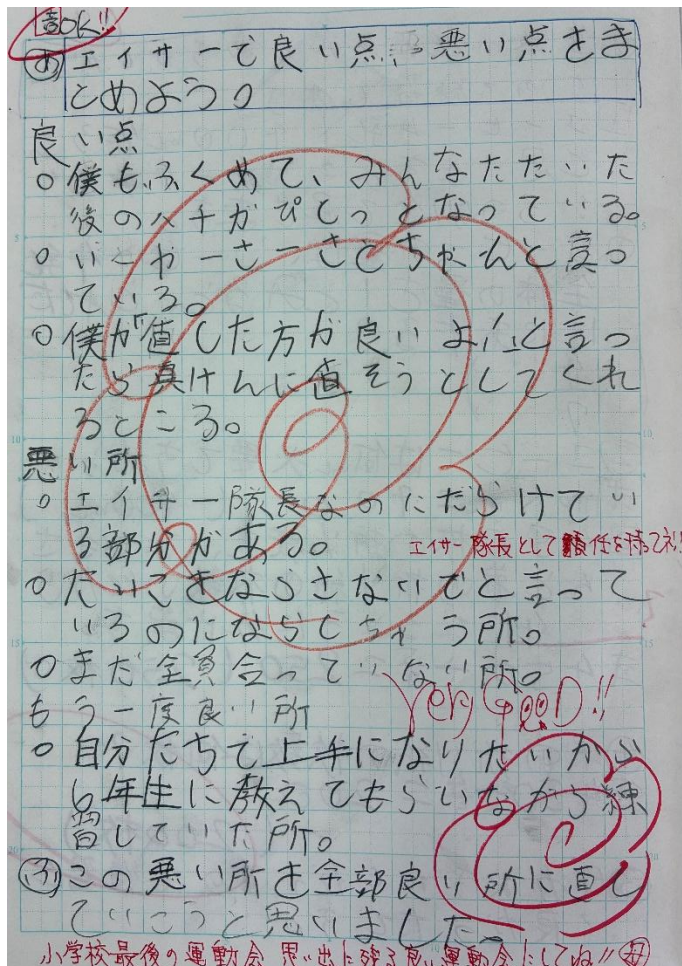 音OK!!
め エイサーで良い点、悪い点をま
とめよう。
良い点
○僕もふくめて、みんなたたいた
後のバチがぴとっとなっている。
○いーやーさーさとちゃんと言っ
ている。
○僕が「値した方が良いよ。」と言っ
たら真けんに直そうとしてくれ
るところ。
悪い所
○エイサー隊長なのにだらけてい
る部分がある。
エイサー隊長として責任を持ってネ!!
○たいこをならさないでと言って
いるのにならしちゃう所。
○まだ全員合っていない所。
Very GooD!!
もう一度良い所
○自分たちで上手になりたいから
6年生に教えてもらいながら練
習していた所。
ふ この悪い所を全部良い所に直し
ていこうと思いました。
小学校最後の運動会 思い出に残る良い運動会にしてね!! 母